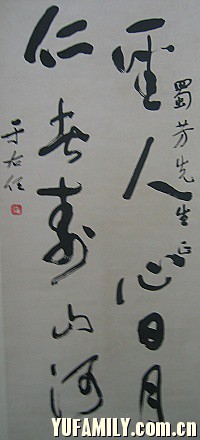 蜀芳先生正
聖人心日月
仁者壽山河
于右任
YUFAMILY.com.cn